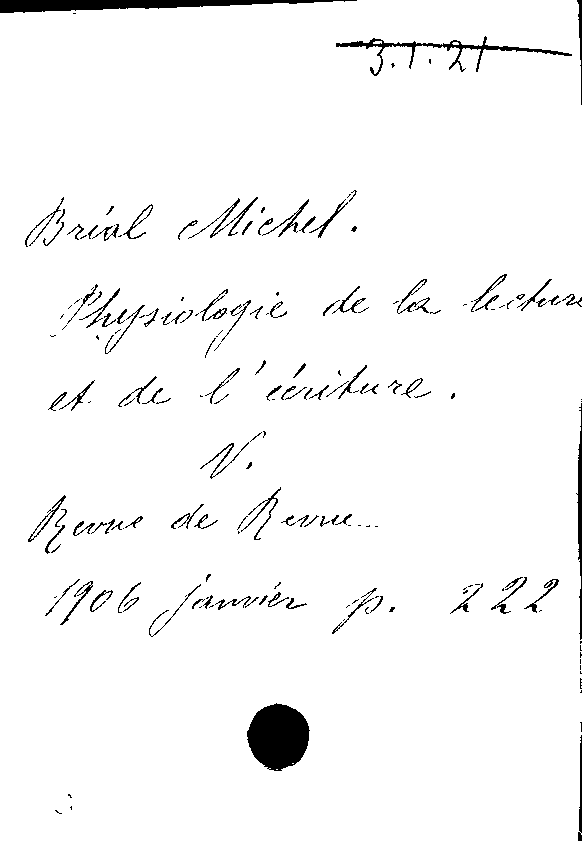 3.1.21
Bréal Michel.
Physiologie de la lecture
et de l'écriture.
V.
Revue de Revue...
1906 janvier p. 222